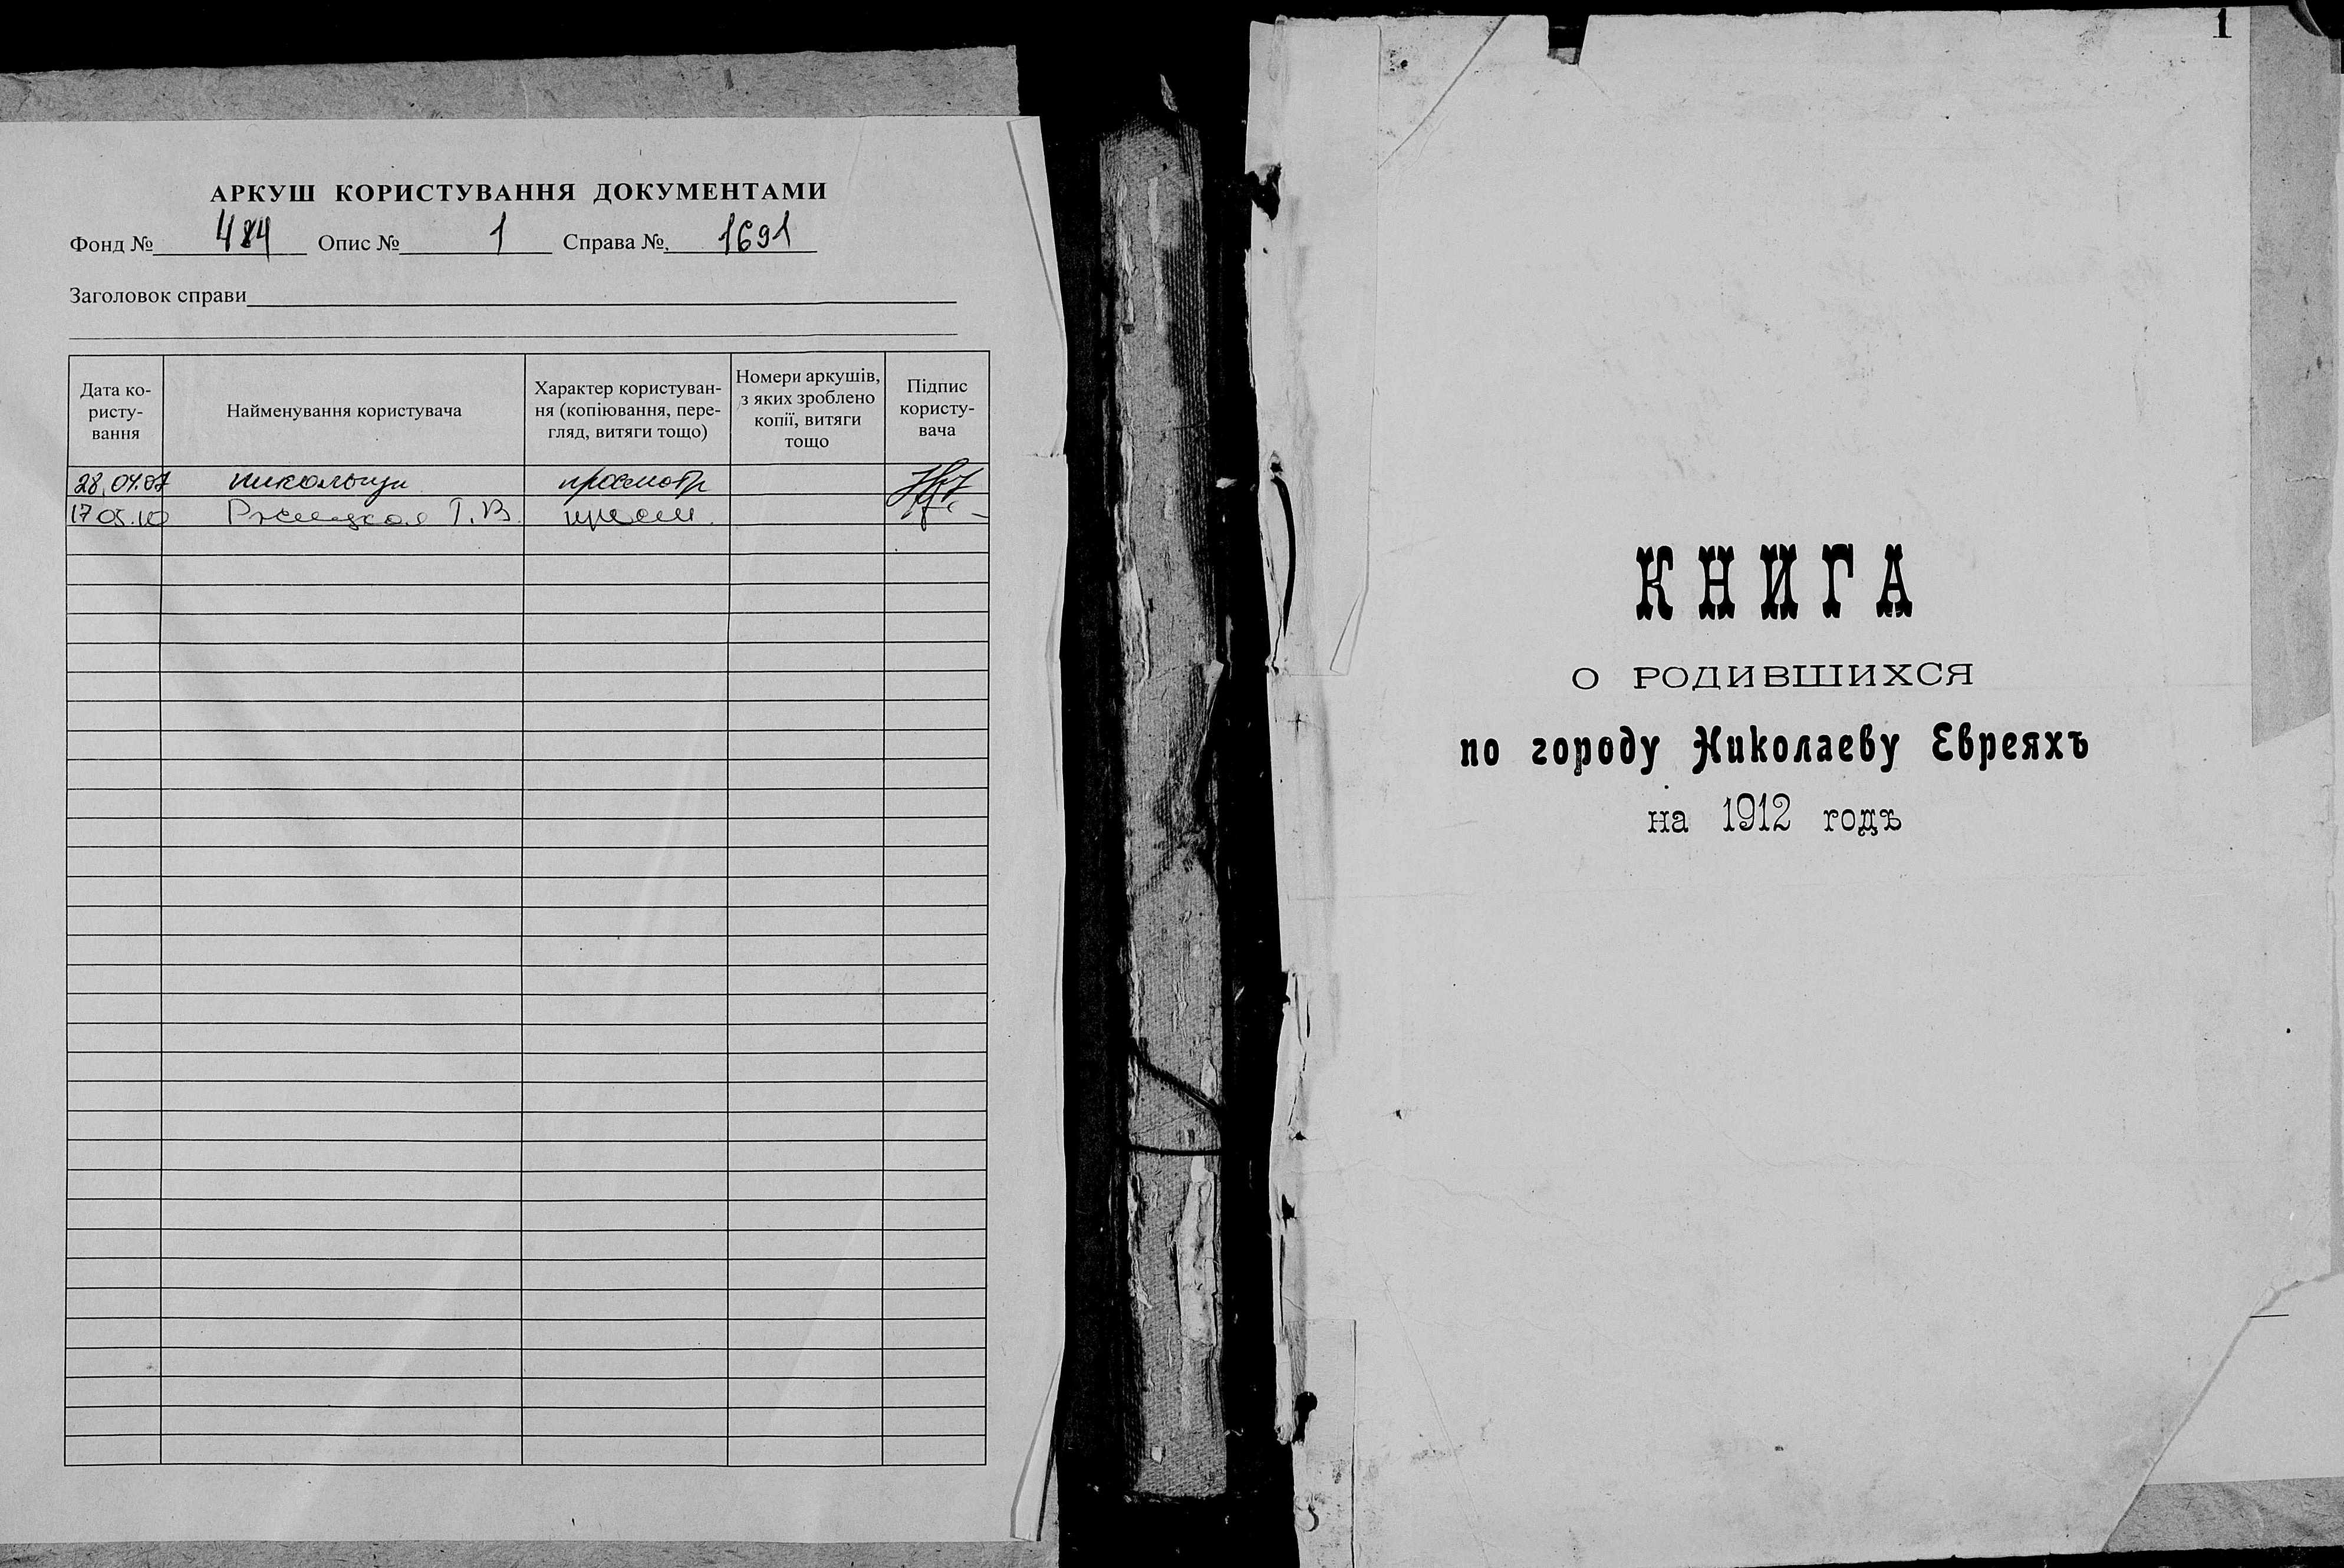 АРКУШ КОРИСТУВАННЯ ДОКУМЕНТАМИ
Фонд № 484 Опис № 1 Справа № 1691
Заголовок справи
Дата ко-
ристу-
вання
Найменування користувача
Характер користуван-
ня (копіювання, пере-
гляд, витяги тощо)
Номери аркушів,
з яких зроблено
копії, витяги
тощо
Підпис
користу-
вача
28.04.07 просмотр
17 05.10 Т.В. просм.
1
КНИГА
О РОДИВШИХСЯ
по городу Николаеву Евреяхъ
на 1912 годъ